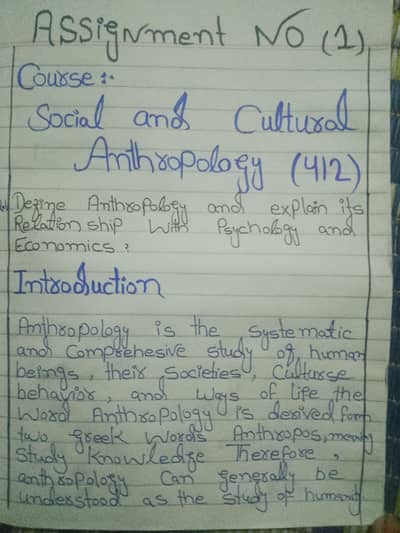 Assignment No (1)
Course:-
Social and Cultural
Anthropology (412)
Define Anthropology and explain its
Relationship with Psychology and
Economics?
Introduction
Anthropology is the systematic
and Comprehesive study of human
beings, their societies, Culturse
behavior, and ways of life the
Word Anthropology is derived form
two greek words Anthropos, meaning
study Knowledge Therefore,
anthropology Can generally be
understood as the study of humanity.